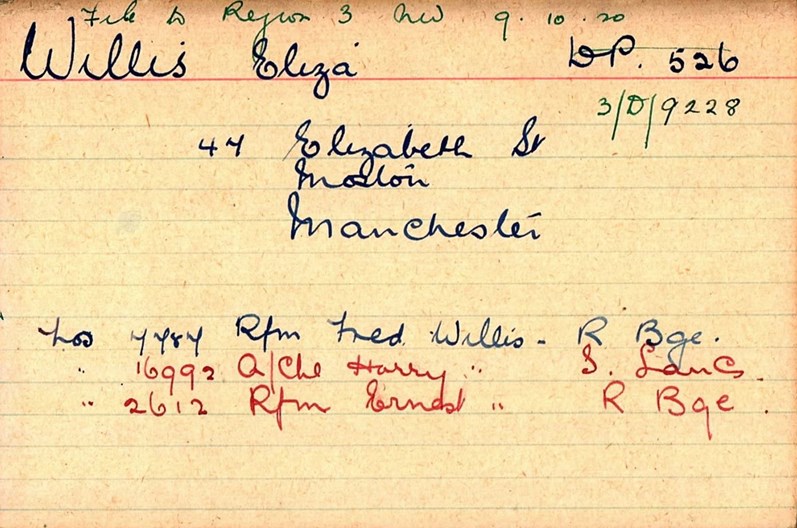 File to Region 3 NW 9.10.20
Willis Eliza D.P. 526
3/D/9228
47 Elizabeth St
Moston
Manchester
No 7787 Rfm Fred Willis - R Bge.
" 16992 A/Cpl Harry " S. Lancs.
" 2612 Rfm Ernest " R Bge.